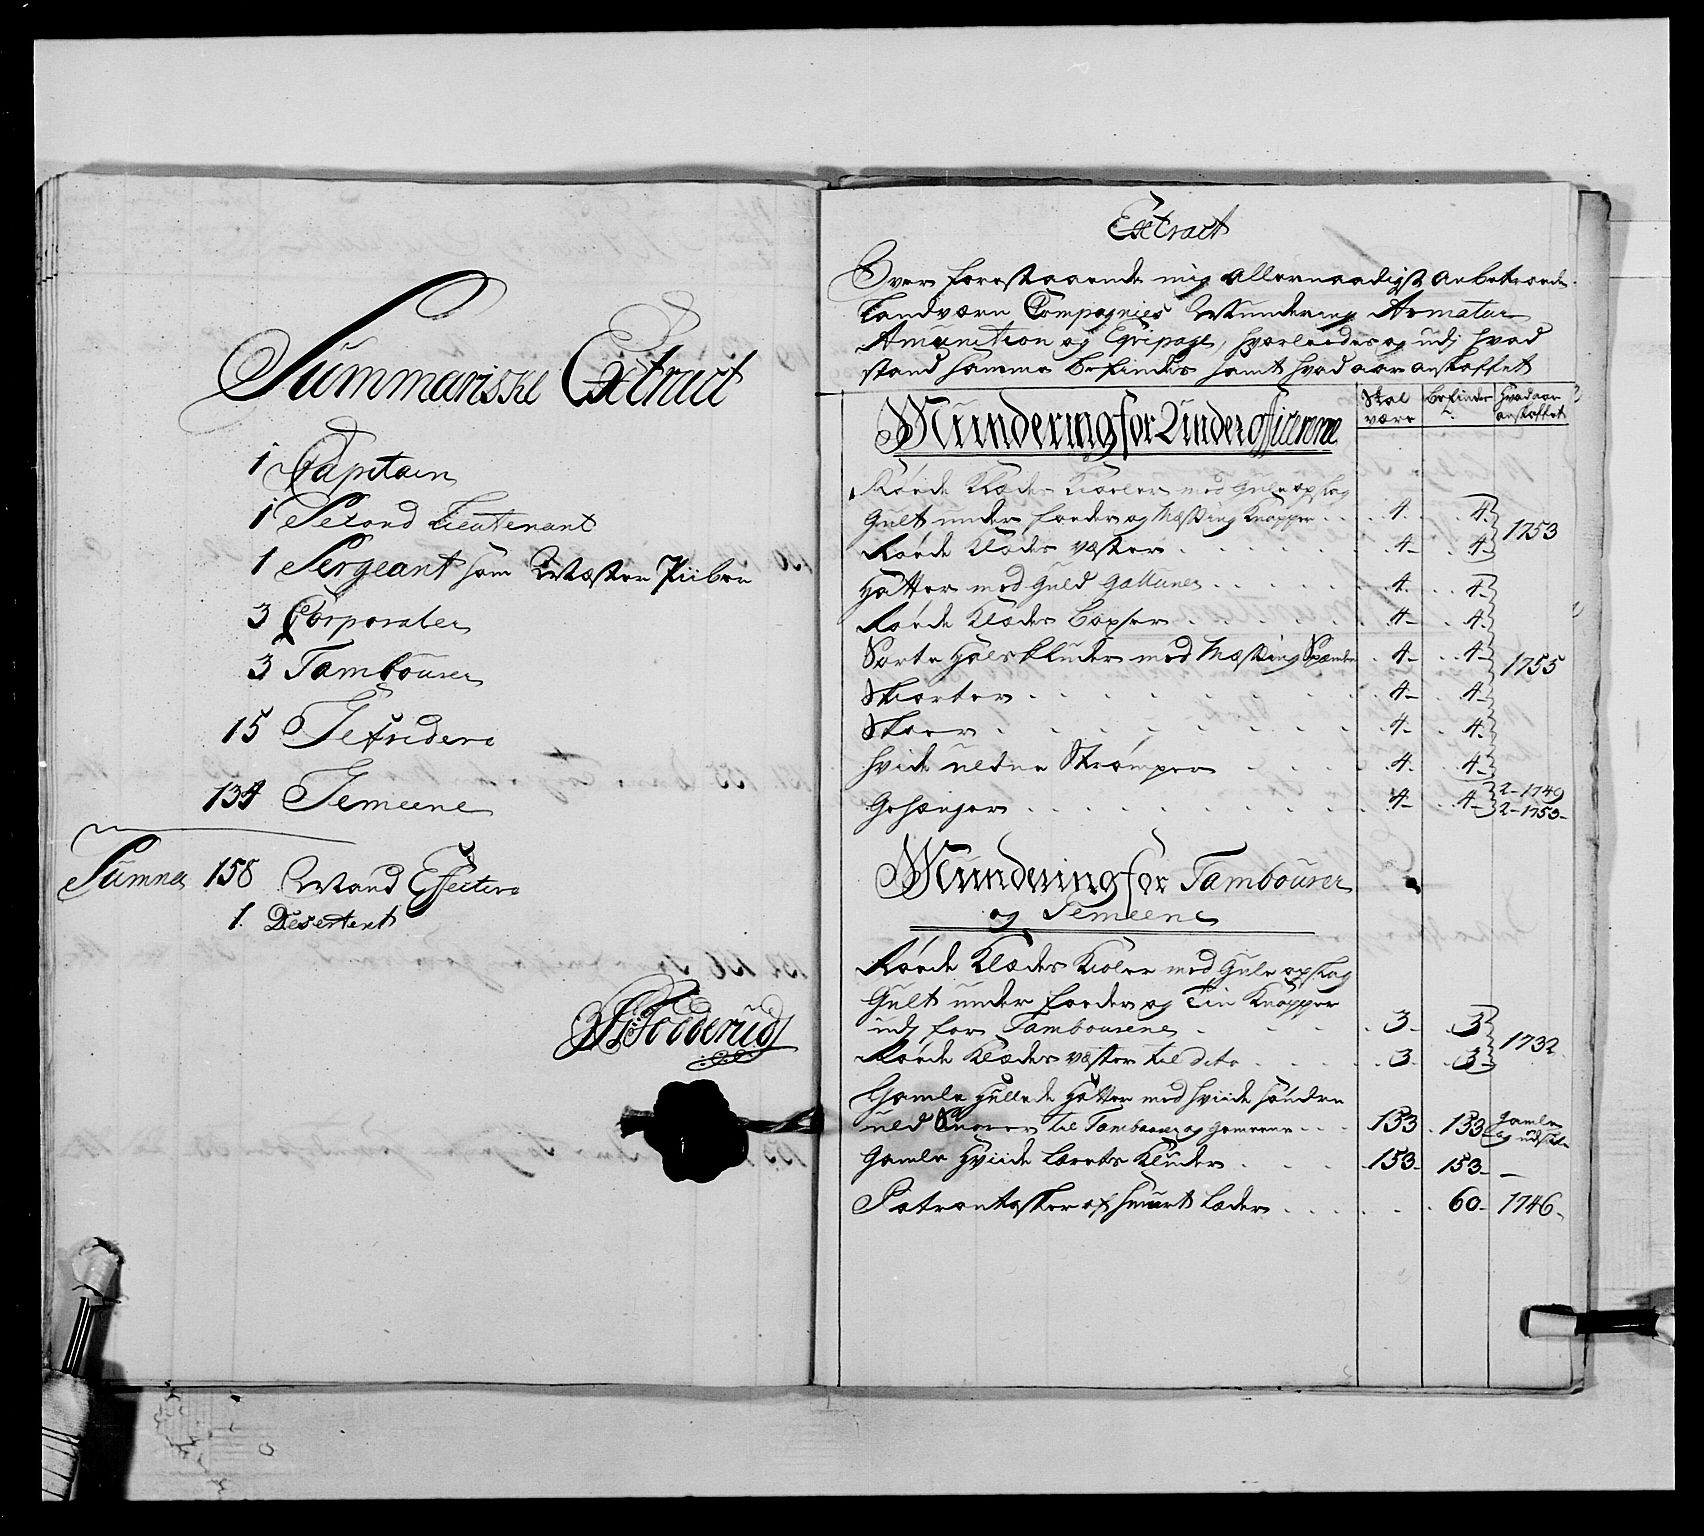 Summariske Extract
1 Capitain
1 Second Lieutenant
1 Sergeant som Mester Piiber
3 Corporaler
3 Tambourer
15 Gefridere
134 Gemeene
Summa 158 Mand Effective
1. Desertert
Extract
Over forestaaende mig allernaadigst anbetroede
Landværn Compagnies Mundering Armatur
Amunition og Eqvipage, hvorledes og udj hvad
stand samme befindes samt hvad aar anskaffet
Mundering for Underofficerene
Skal være
befindes
hvad aar anskaffet
Røede Klædes Kioler med Gule opslag
Gult under foeder og Messing Knapper . . 4. . . 4. 1753
Røede Klædes vester . . . . . 4- . . 4-
Hatter med Guld Galluner . . . . 4. . . 4-
Røede Klædes böxser . . . . 4- . . 4.
Sorte Halsklude med Messing Spænder . 4- . . 4- 1755
Skiorter . . . . . 4- . . 4.
Skoer . . . . . 4- . . 4.
hvide uldne Strømper . . . . 4. . . 4-
Gehænger . . . . . 4- . . 4- 2-1749
2-1753-
Mundering for Tambourer
og Gemeene
Røede Klædes Kioler med Gule opslag
Gult under foeder og Tin Knapper
udj for Tambourene . . . . 3- . . 3 1732
Røede Klædes vester til dito . . . . 3- . . 3-
Gamle Hullede Hatter med hviide söndre
uld Snorer til Tambourer og gemeene . . . 153 . 153 Gamle
og udslidte
Gamle Hviide Lærets Kluder . . . . 153- 153- -
Patrontasker af smurt Læder . . . . . . 60- 1746-